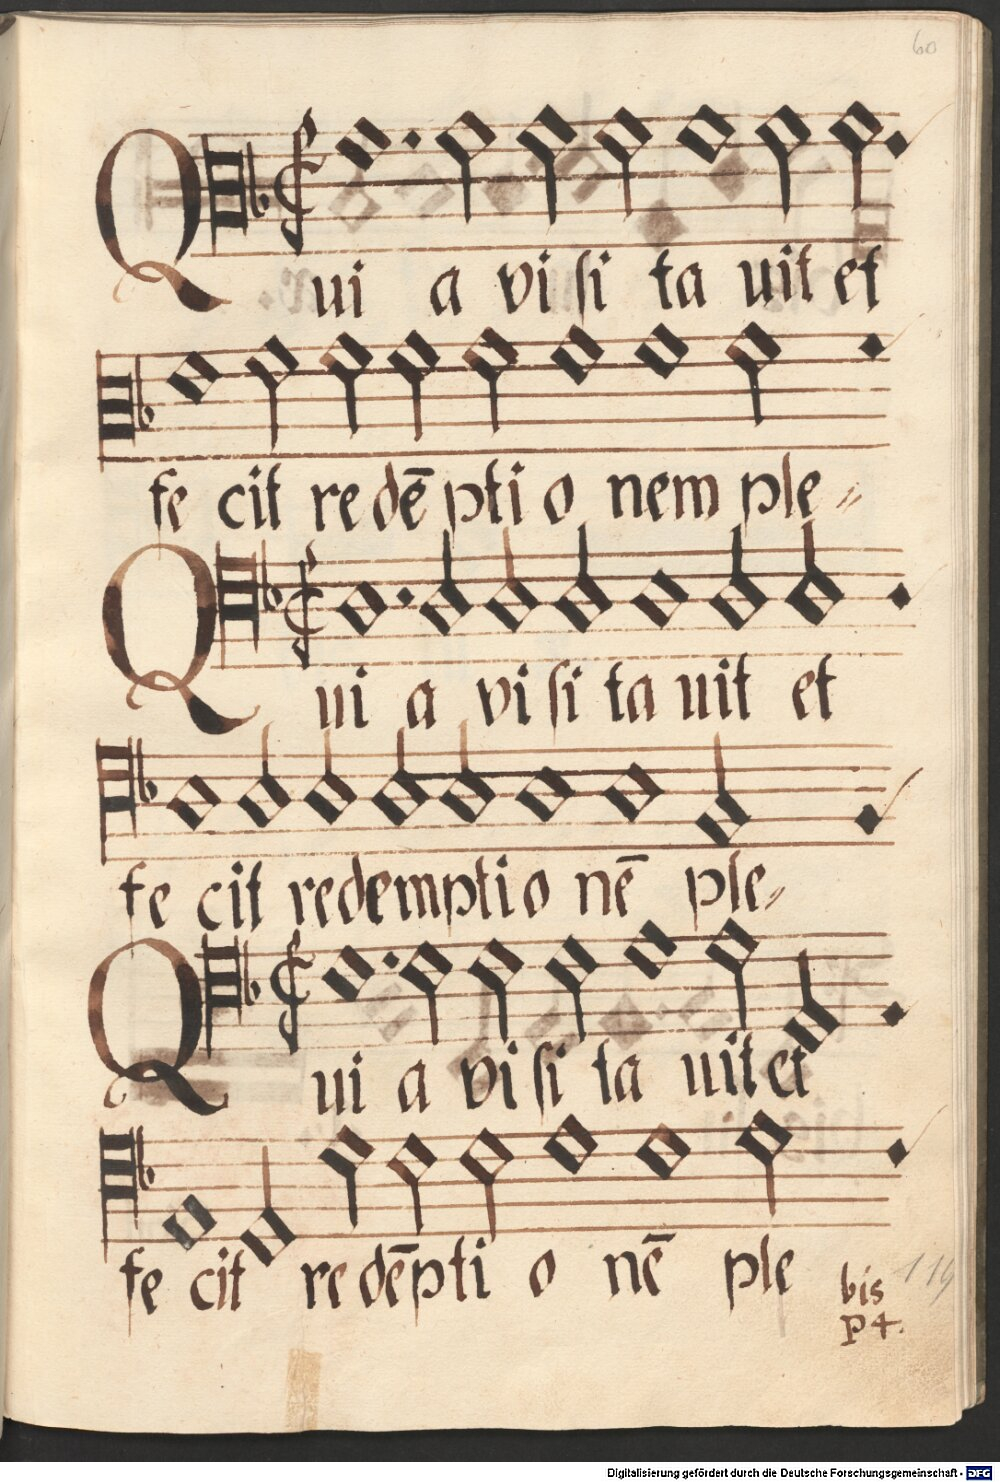 60
Qui a vi ſi ta uit et
fe cit re dē pti o nem ple
Qui a vi ſi ta uit et
fe cit redemptio nē ple
Qui a vi ſi ta uit et
fe cit re dē pti o nē ple
bis
p 4.
119
Digitalisierung gefördert durch die Deutsche Forschungsgemeinschaft - DFG